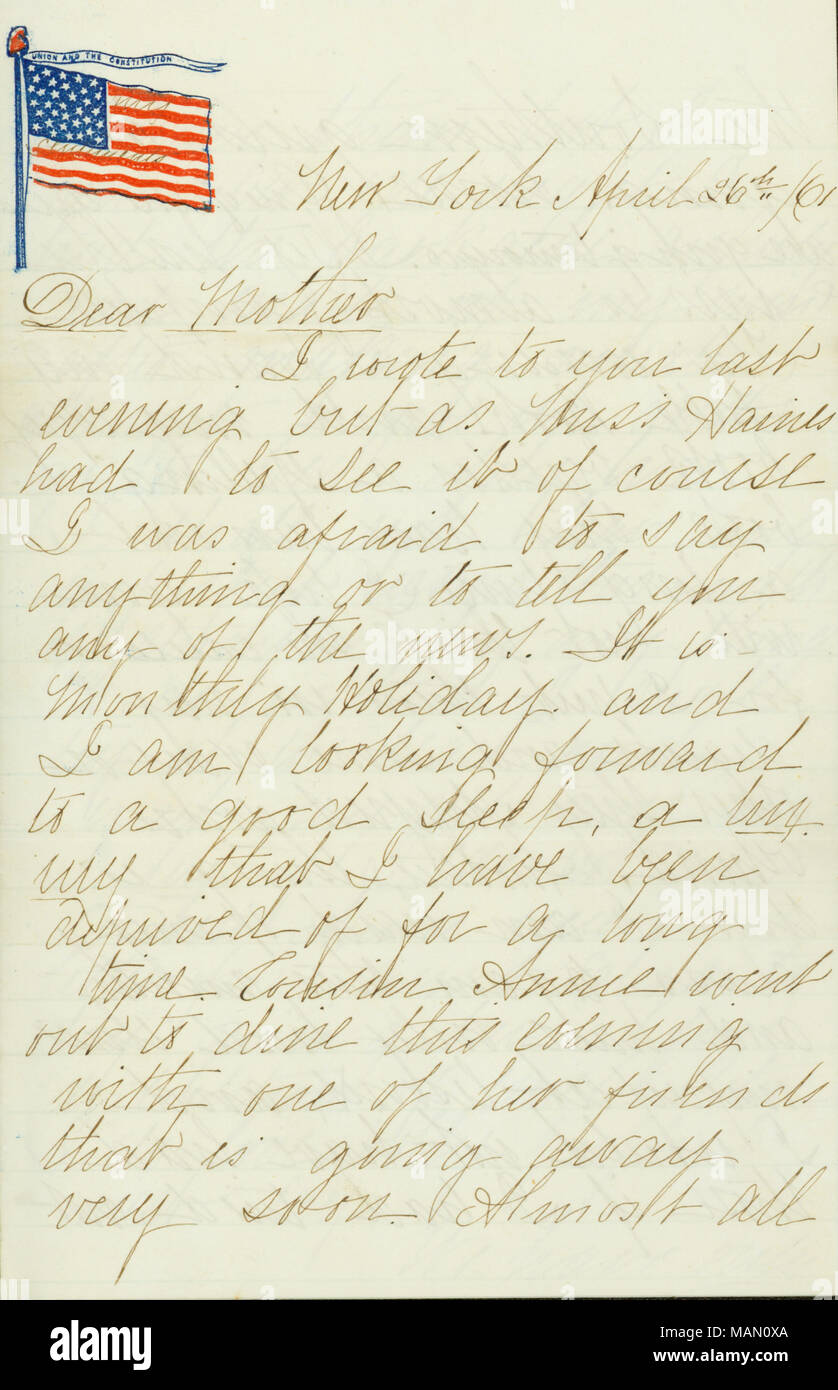 UNION AND THE CONSTITUTION
New York April 26th /61
Dear Mother
I wrote to you last
evening but as Miss Haines
had to see it of course
I was afraid to say
anything or to tell you
any of the news. It is
Monthly Holiday and
I am looking forward
to a good sleep, a lux
ury that I have been
deprived of for a long
time. Cousin Annie went
out to dine this evening
with one of her friends
that is going away
very soon. Almost all
alamy stock photo
Image ID: MAN0XA
www.alamy.com